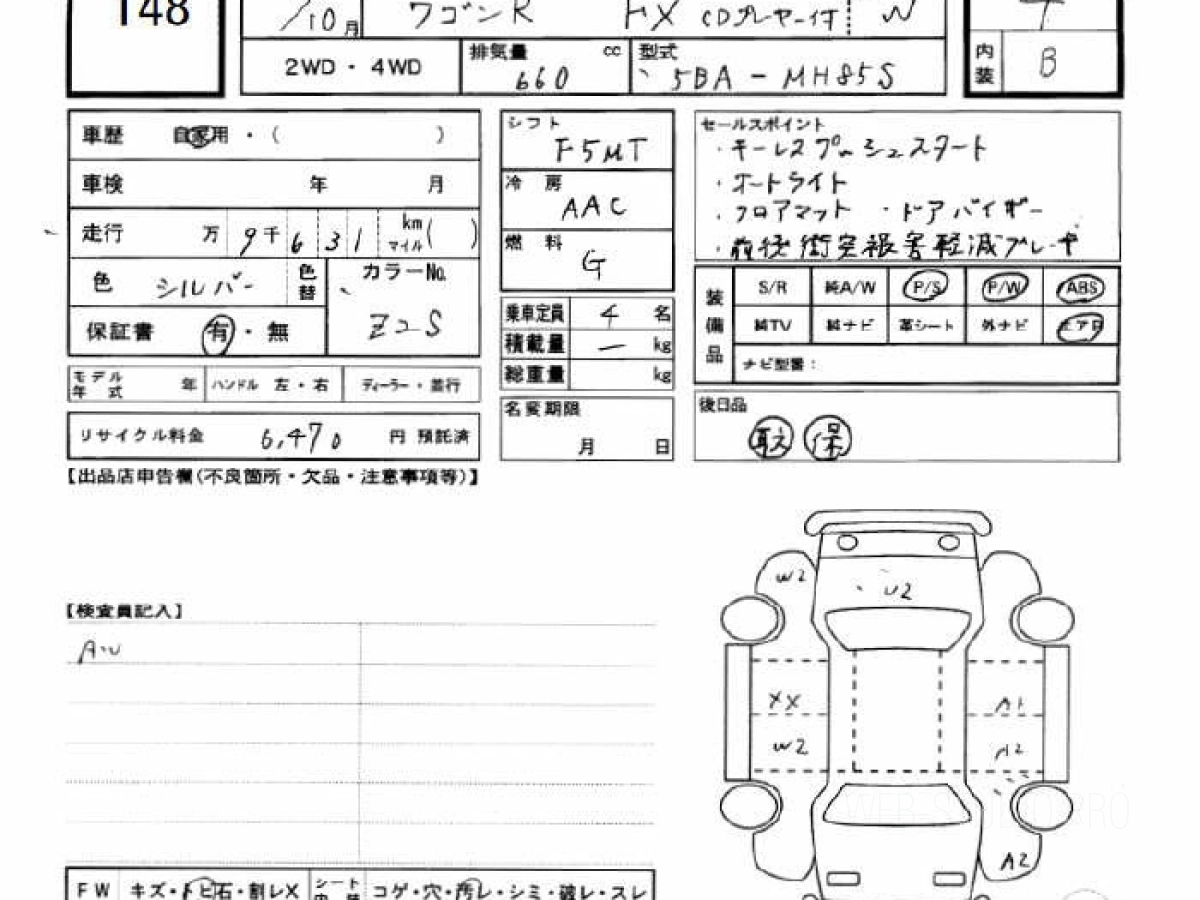 148
/10月 ワゴンR FX CDプレヤー付
2WD・4WD 排気量 660 cc 型式 5BA-MH85S
内装 B
車歴 自家用・( )
車検 年 月
走行 万 9千 6 3 1 km マイル ( )
色 シルバー 色替
カラーNo. Z2S
保証書 有・無
モデル年式 年 ハンドル 左・右 ディーラー・並行
リサイクル料金 6,470 円 預託済
シフト F5MT
冷房 AAC
燃料 G
乗車定員 4 名
積載量 ー kg
総重量 kg
名変期限 月 日
セールスポイント
・キーレスプッシュスタート
・オートライト
・フロアマット ・ドアバイザー
・前後衝突被害軽減ブレーキ
装備品 S/R 純A/W P/S P/W ABS
純TV 純ナビ 革シート 外ナビ エアB
ナビ型番:
後日品
取 保
【出品店申告欄(不良箇所・欠品・注意事項等)】
【検査員記入】
A・U
W2
U2
XX
A1
W2
A2
A2
FW キズ・トビ石・割レX シート内装 コゲ・穴・汚レ・シミ・破レ・スレ